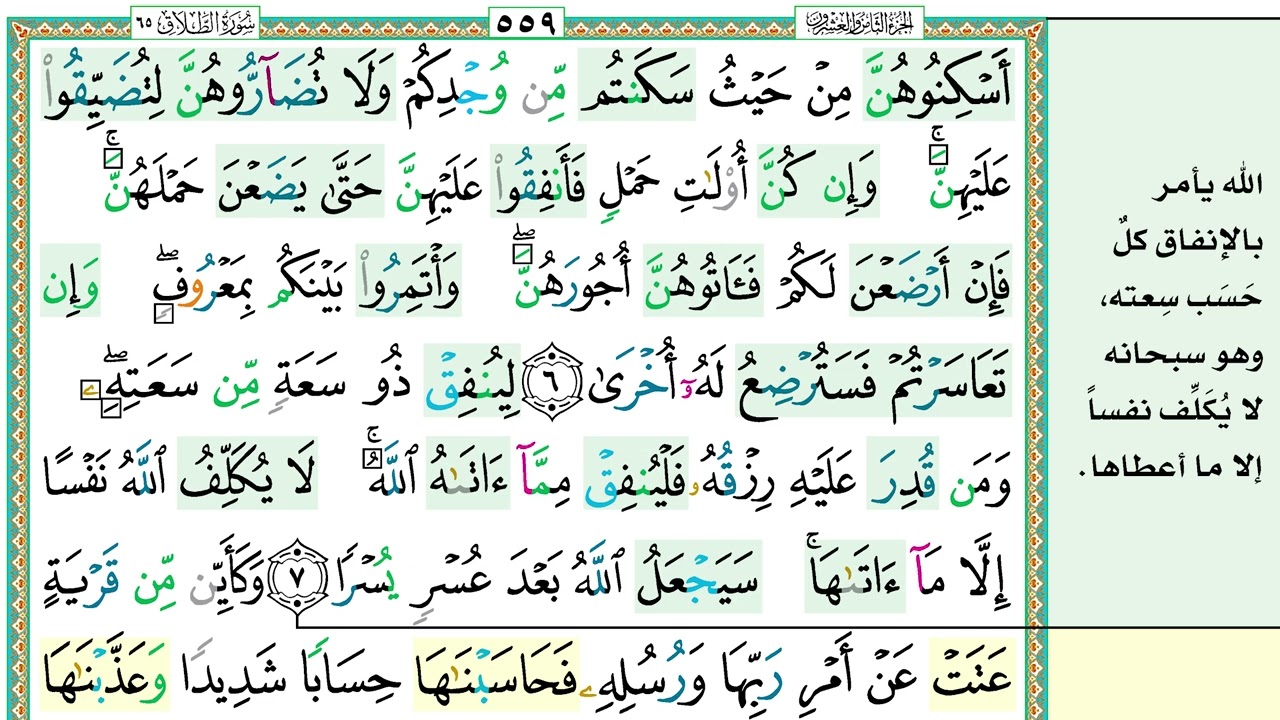 الجزء الثامن والعشرون
٥٥٩
سورة الطلاق ٦٥
أَسْكِنُوهُنَّ مِنْ حَيْثُ سَكَنتُم مِّن وُجْدِكُمْ وَلَا تُضَآرُّوهُنَّ لِتُضَيِّقُوا۟
عَلَيْهِنَّ ۚ وَإِن كُنَّ أُو۟لَٰتِ حَمْلٍ فَأَنفِقُوا۟ عَلَيْهِنَّ حَتَّىٰ يَضَعْنَ حَمْلَهُنَّ ۚ
فَإِنْ أَرْضَعْنَ لَكُمْ فَـَٔاتُوهُنَّ أُجُورَهُنَّ ۖ وَأْتَمِرُوا۟ بَيْنَكُم بِمَعْرُوفٍ ۖ وَإِن
تَعَاسَرْتُمْ فَسَتُرْضِعُ لَهُۥٓ أُخْرَىٰ ٦ لِيُنفِقْ ذُو سَعَةٍ مِّن سَعَتِهِۦ ۖ
وَمَن قُدِرَ عَلَيْهِ رِزْقُهُۥ فَلْيُنفِقْ مِمَّآ ءَاتَىٰهُ ٱللَّهُ ۚ لَا يُكَلِّفُ ٱللَّهُ نَفْسًا
إِلَّا مَآ ءَاتَىٰهَا ۚ سَيَجْعَلُ ٱللَّهُ بَعْدَ عُسْرٍ يُسْرًا ٧ وَكَأَيِّن مِّن قَرْيَةٍ
عَتَتْ عَنْ أَمْرِ رَبِّهَا وَرُسُلِهِۦ فَحَاسَبْنَٰهَا حِسَابًا شَدِيدًا وَعَذَّبْنَٰهَا
الله يأمر
بالإنفاق كلٌ
حَسَب سِعته،
وهو سبحانه
لا يُكَلِّف نفساً
إلا ما أعطاها.